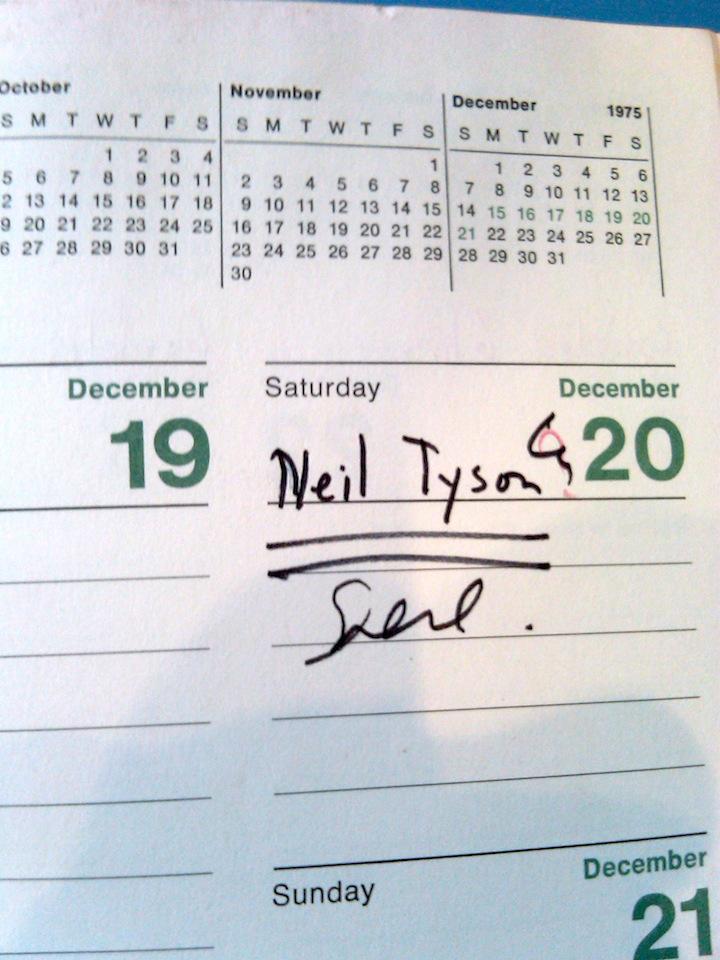 October
S M T W T F S
1 2 3 4
5 6 7 8 9 10 11
2 13 14 15 16 17 18
9 20 21 22 23 24 25
6 27 28 29 30 31
November
S M T W T F S
1
2 3 4 5 6 7 8
9 10 11 12 13 14 15
16 17 18 19 20 21 22
23 24 25 26 27 28 29
30
December 1975
S M T W T F S
1 2 3 4 5 6
7 8 9 10 11 12 13
14 15 16 17 18 19 20
21 22 23 24 25 26 27
28 29 30 31
December
19
Saturday December
20
Neil Tyson
Sunday December
21